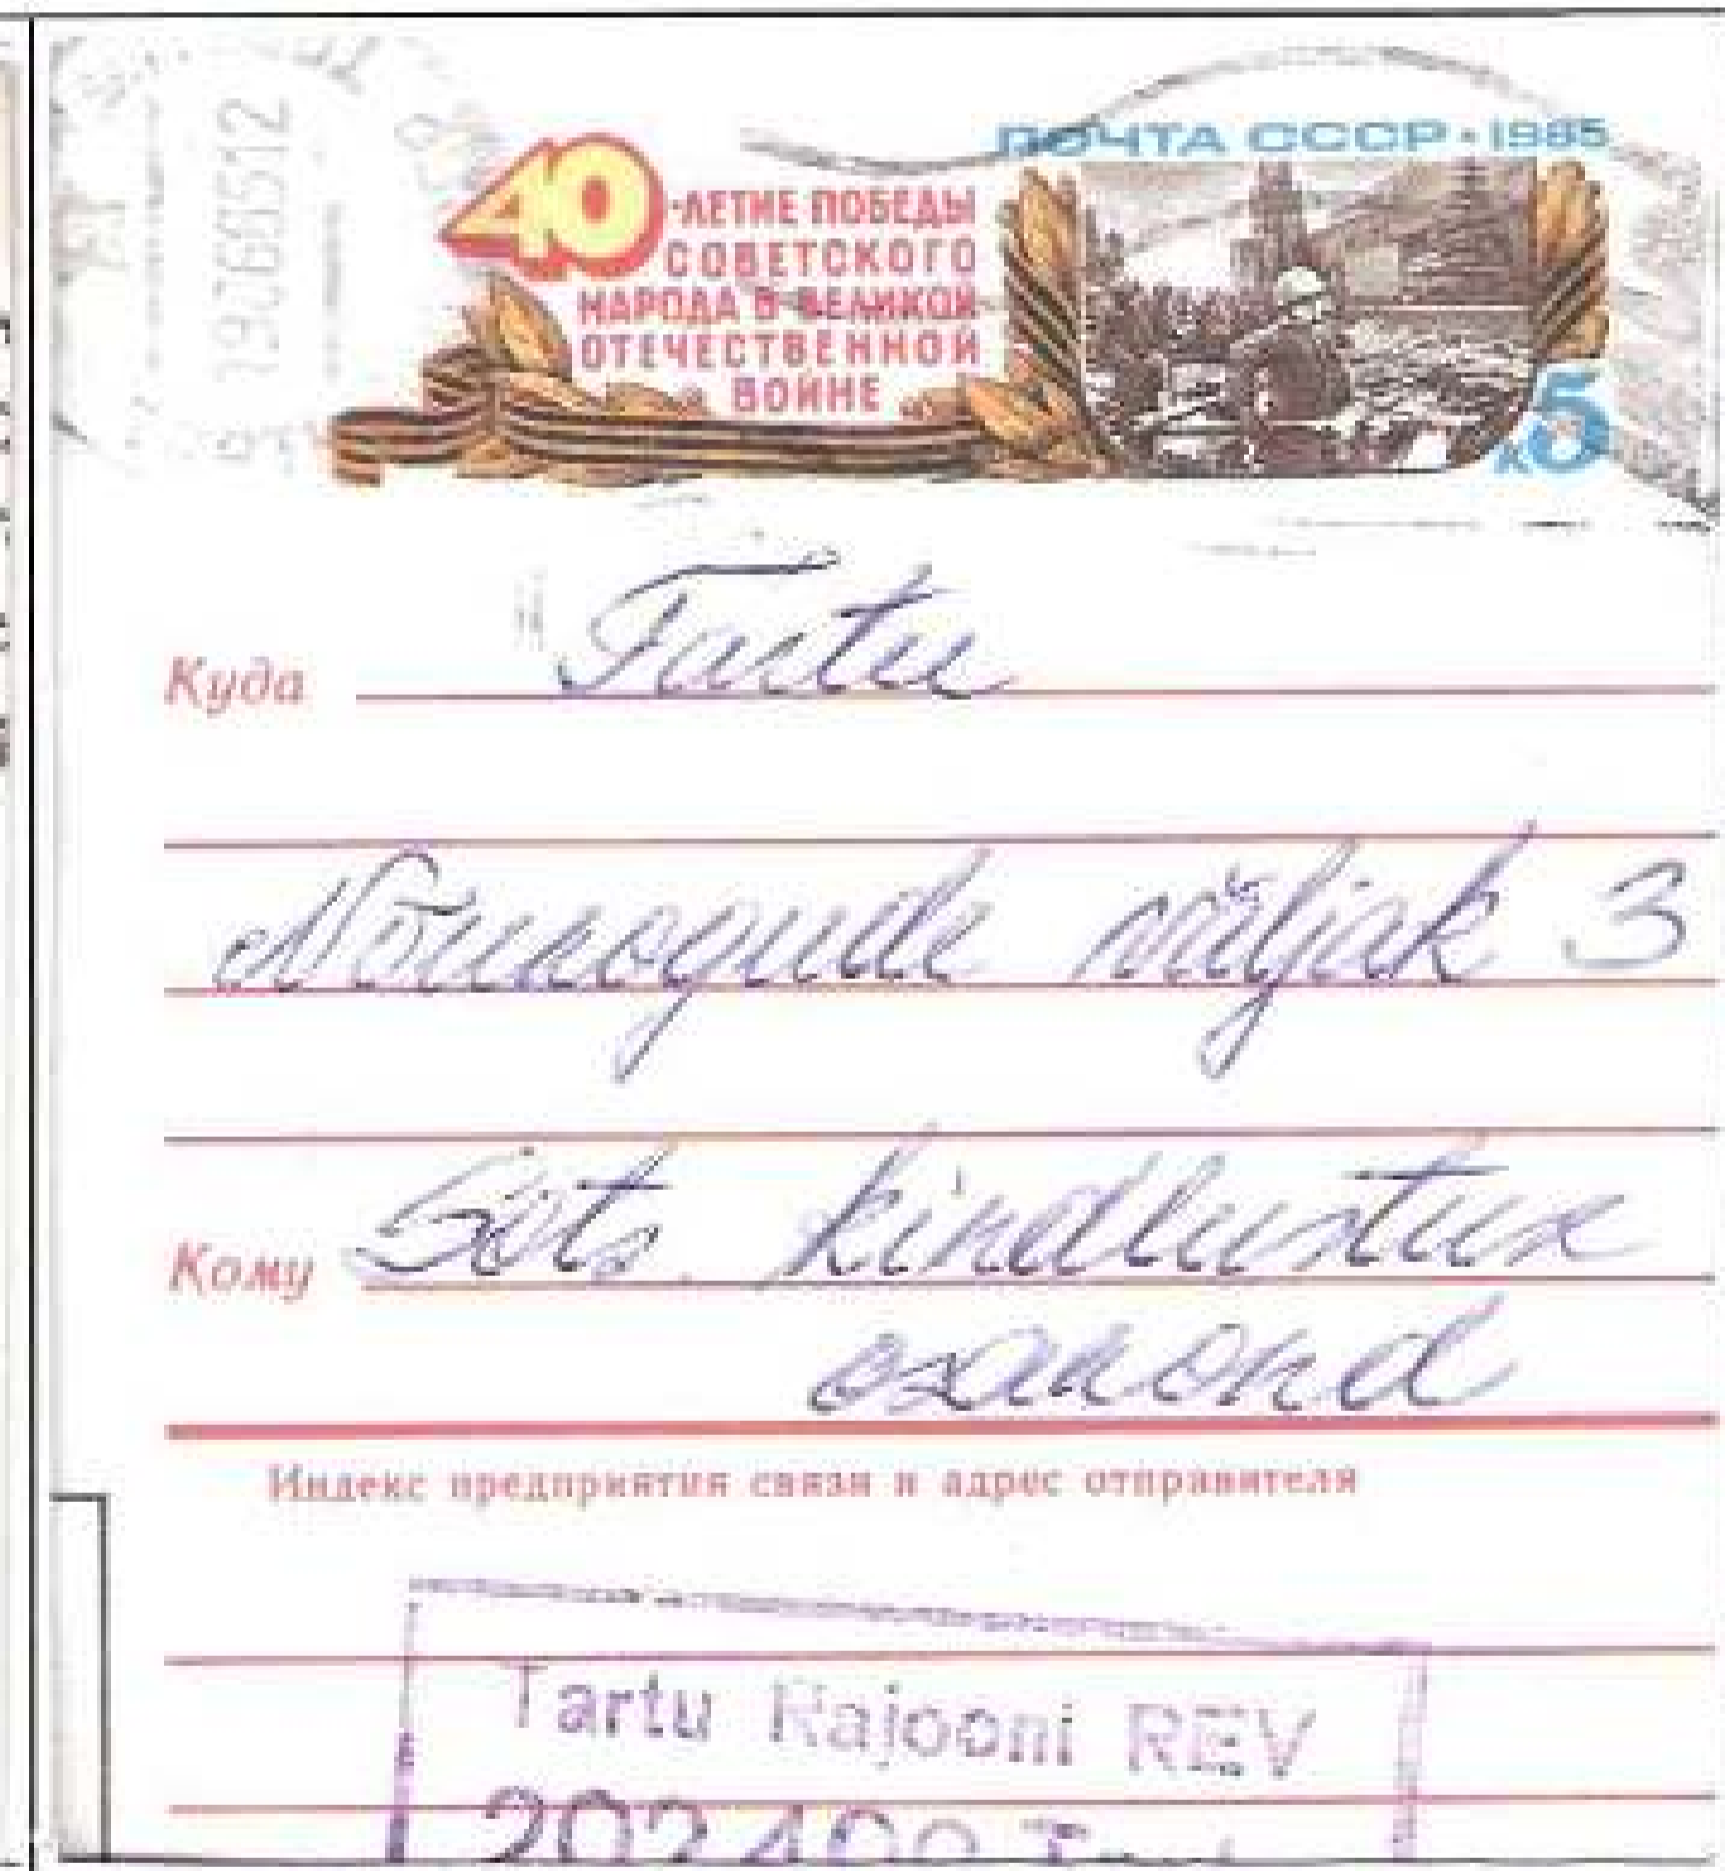 ПОЧТА СССР · 1985
40-ЛЕТИЕ ПОБЕДЫ
СОВЕТСКОГО
НАРОДА В ВЕЛИКОЙ
ОТЕЧЕСТВЕННОЙ
ВОЙНЕ
к5
Куда Tartu
Nõukogude väljak 3
Кому Sots. kindlustuse
osakond
Индекс предприятия связи и адрес отправителя
Tartu Rajooni REV
202400